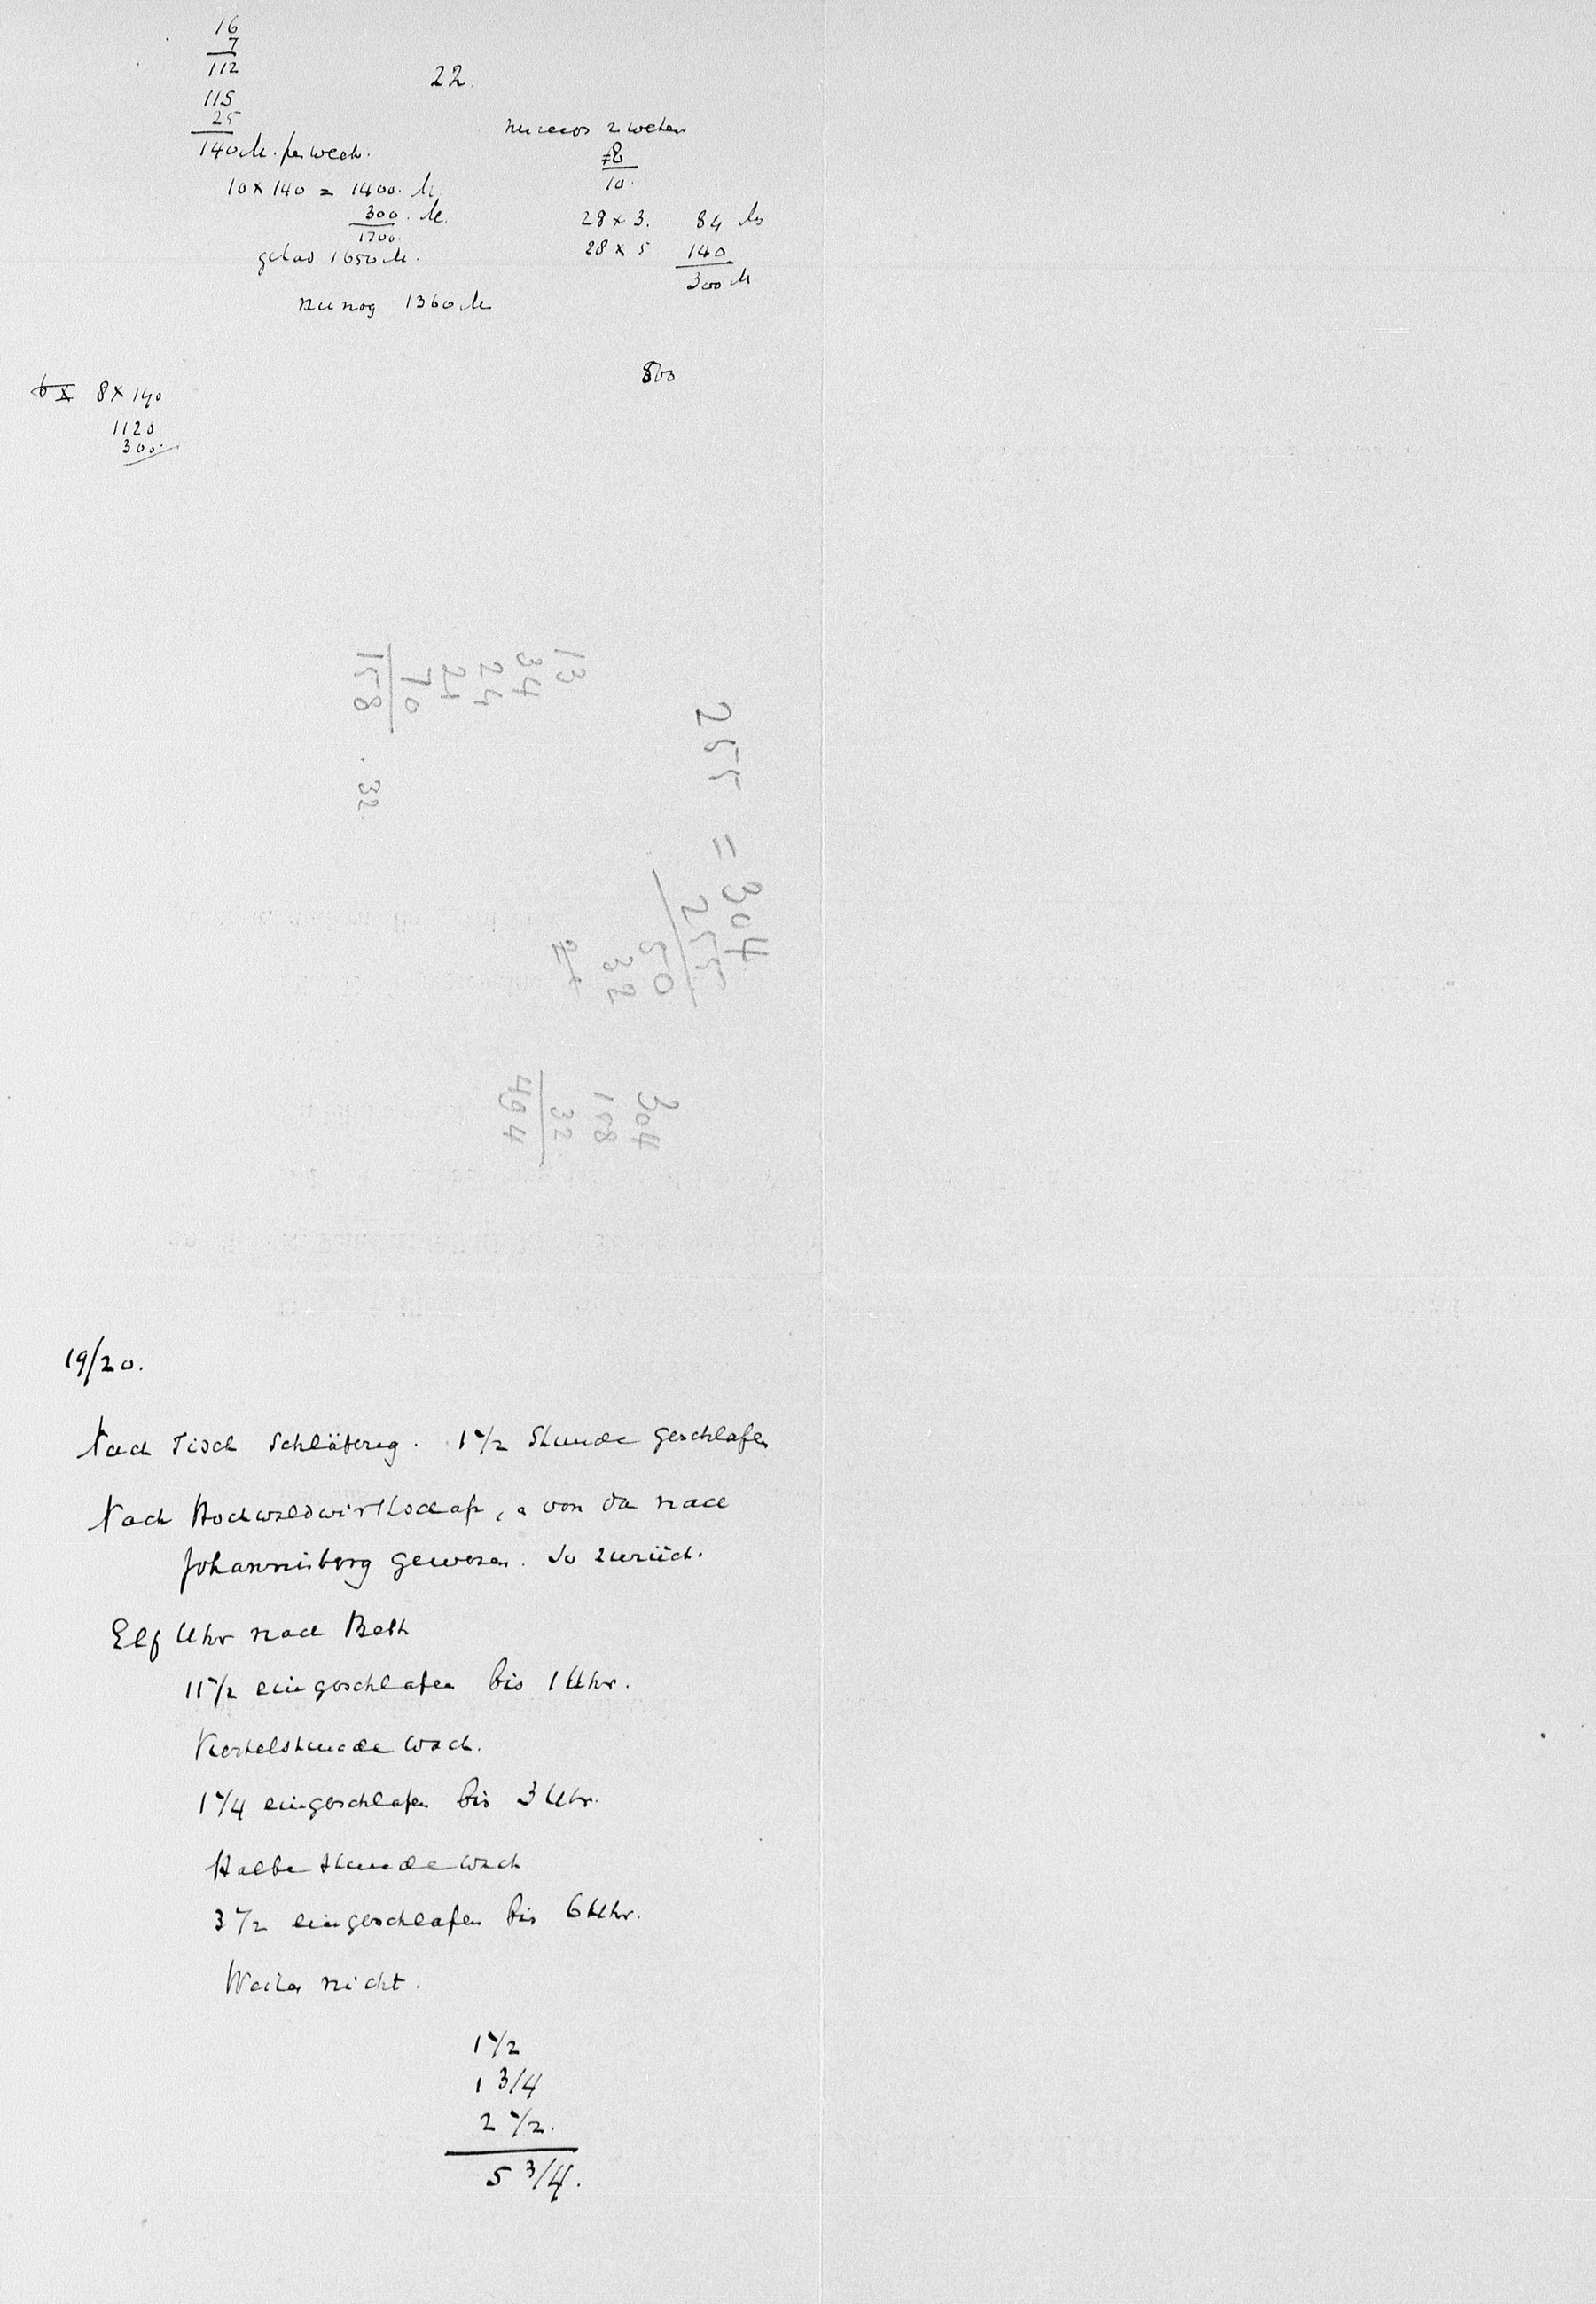 16
7
112
22.
115
25
140 M. per week.
10 x 140 = 1400. M
300. M.
1700.
gehad 1650 M.
nu nog 1360 M
2 weken
8
10.
28 x 3. 84 M
28 x 5 140
300 M
500
6 x 8 x 140
1120
300.
13
34
24
21
70
158 . 32.
255 = 304
255
50
32
304
158
32
494
19/20.
Nach Tisch Schläferig. 1 1/2 Stunde geschlafen
Nach Hochwaldwirthschaft, a von da nach
Johannisberg gewesen. So zurück.
Elf Uhr nach Beth
11 1/2 eingeschlafen bis 1 Uhr.
Viertelstunde wach.
1 1/4 eingeschlafen bis 3 Uhr.
Halbe Stunde wach
3 1/2 eingeschlafen bis 6 Uhr.
Weiter nicht.
1 1/2
1 3/4
2 1/2.
5 3/4.